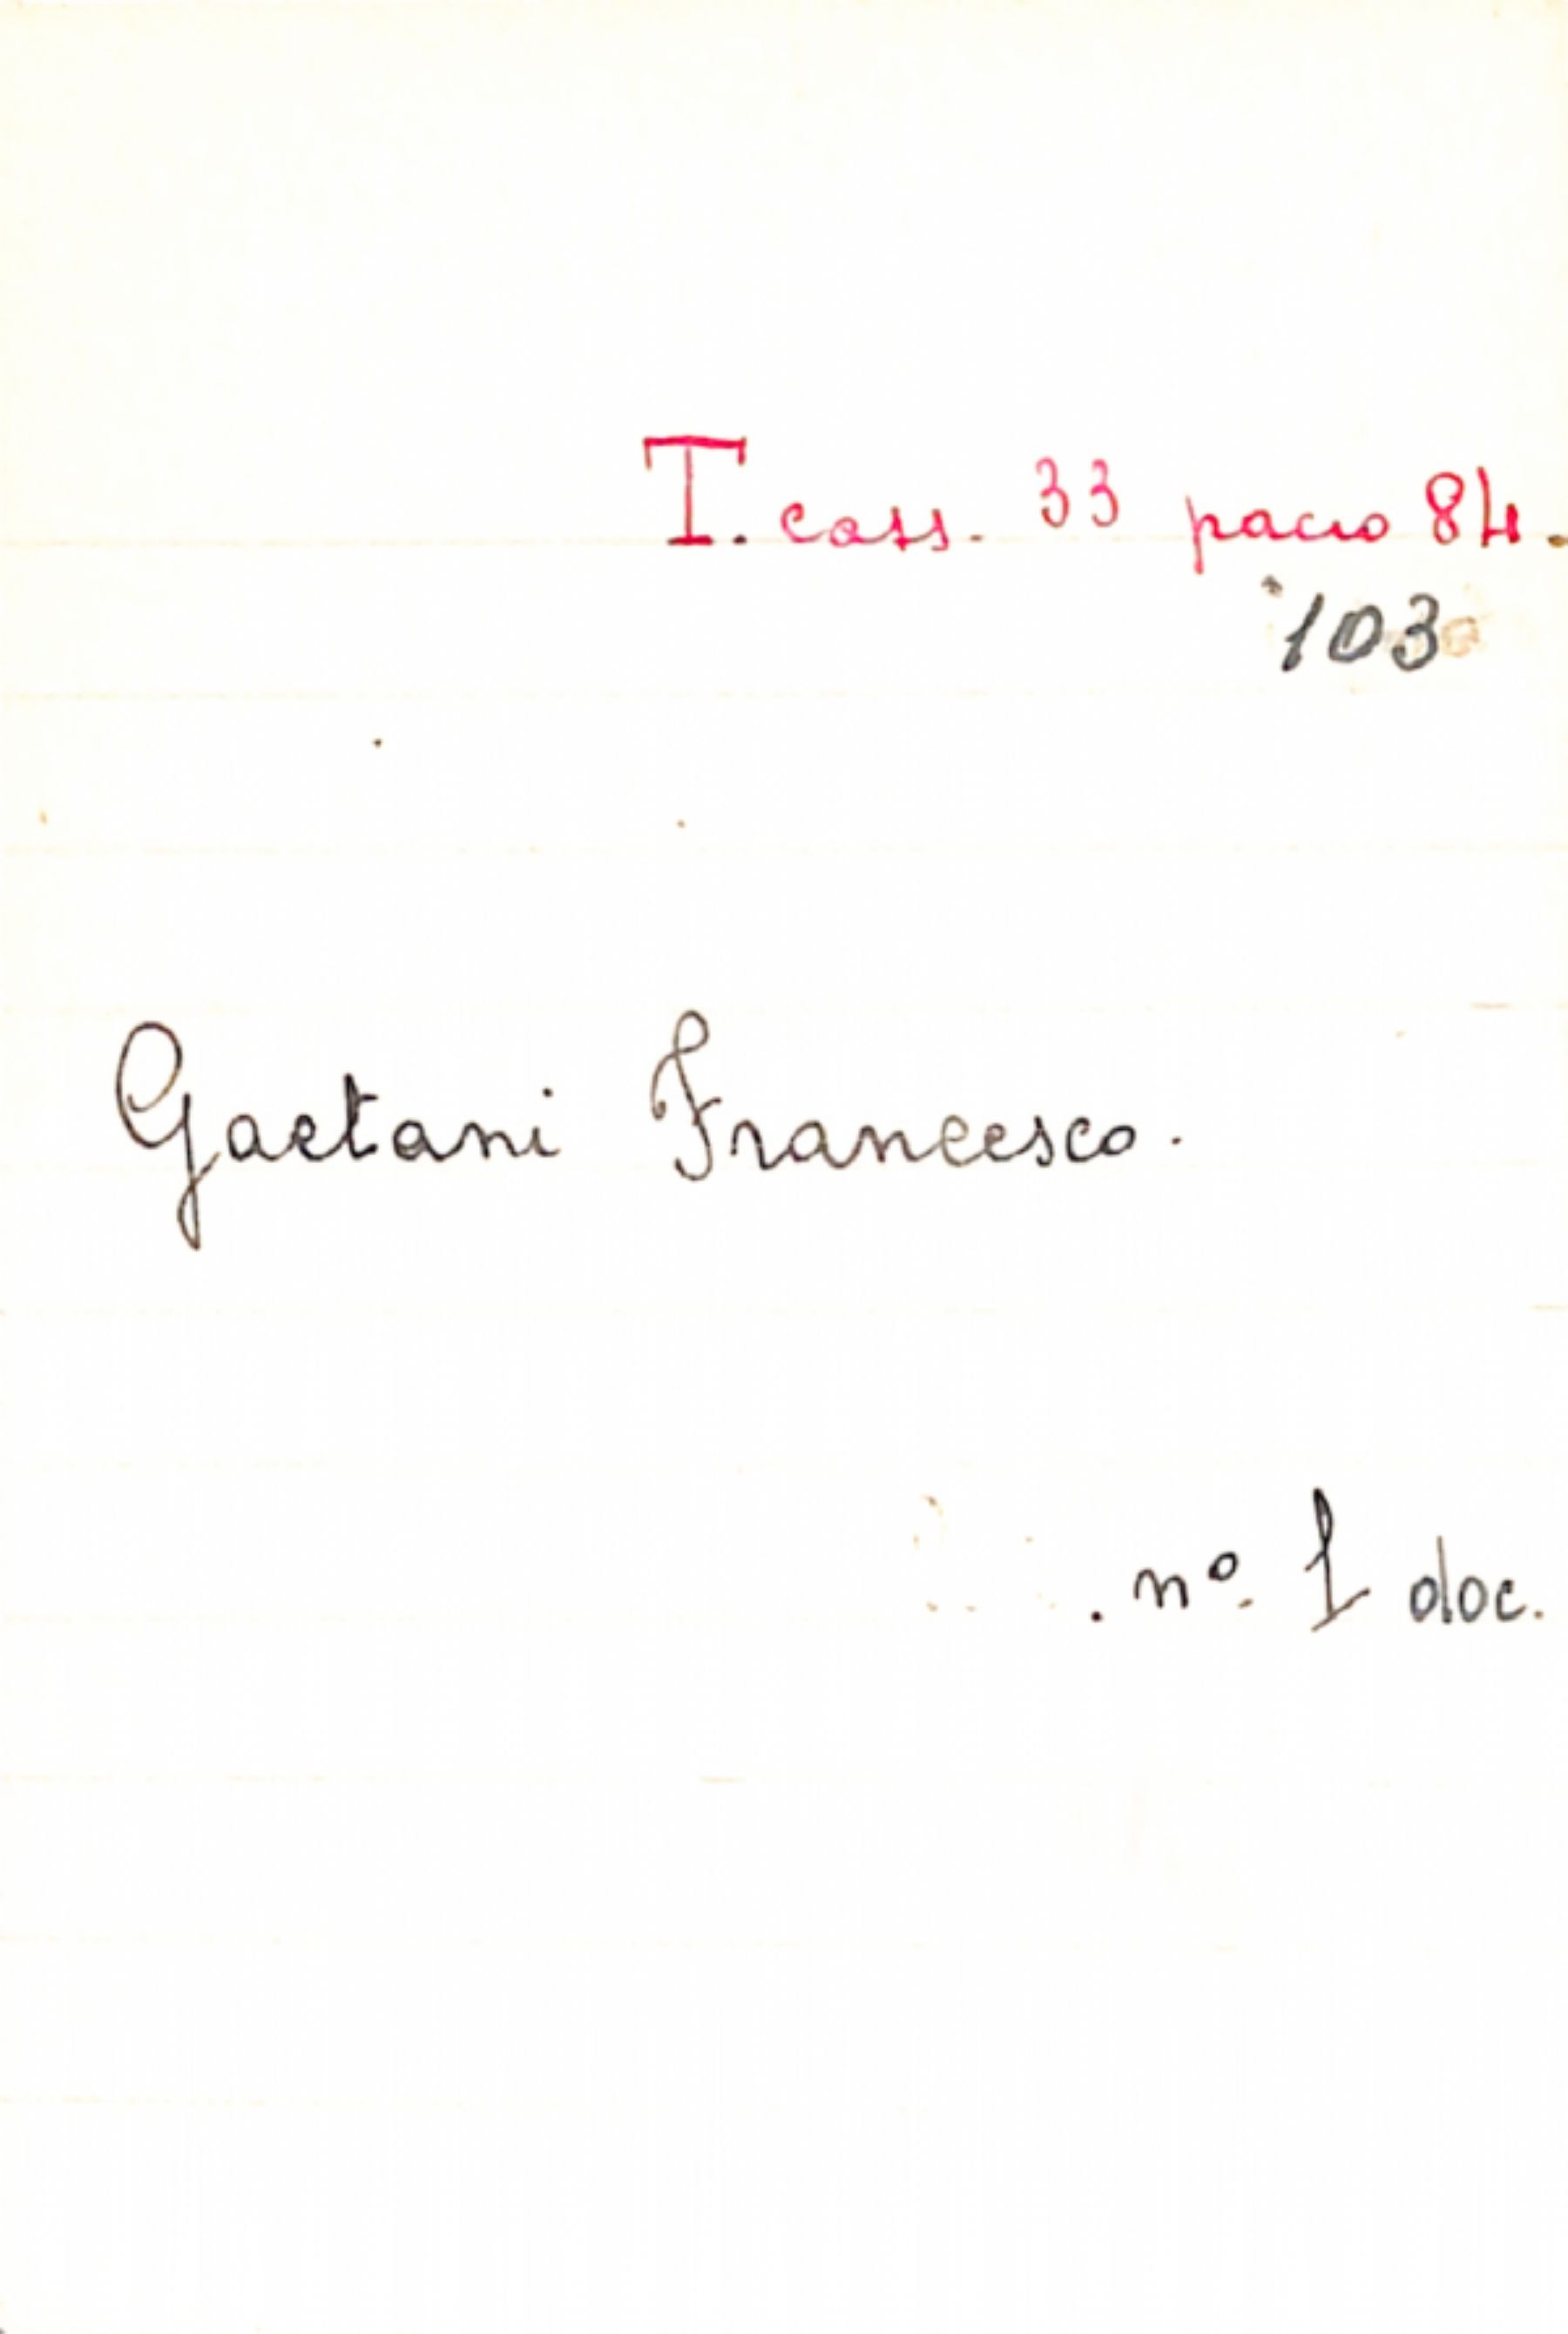 T. cass. 33 pacco 84.
103
Gaetani Francesco.
nº 1 doc.